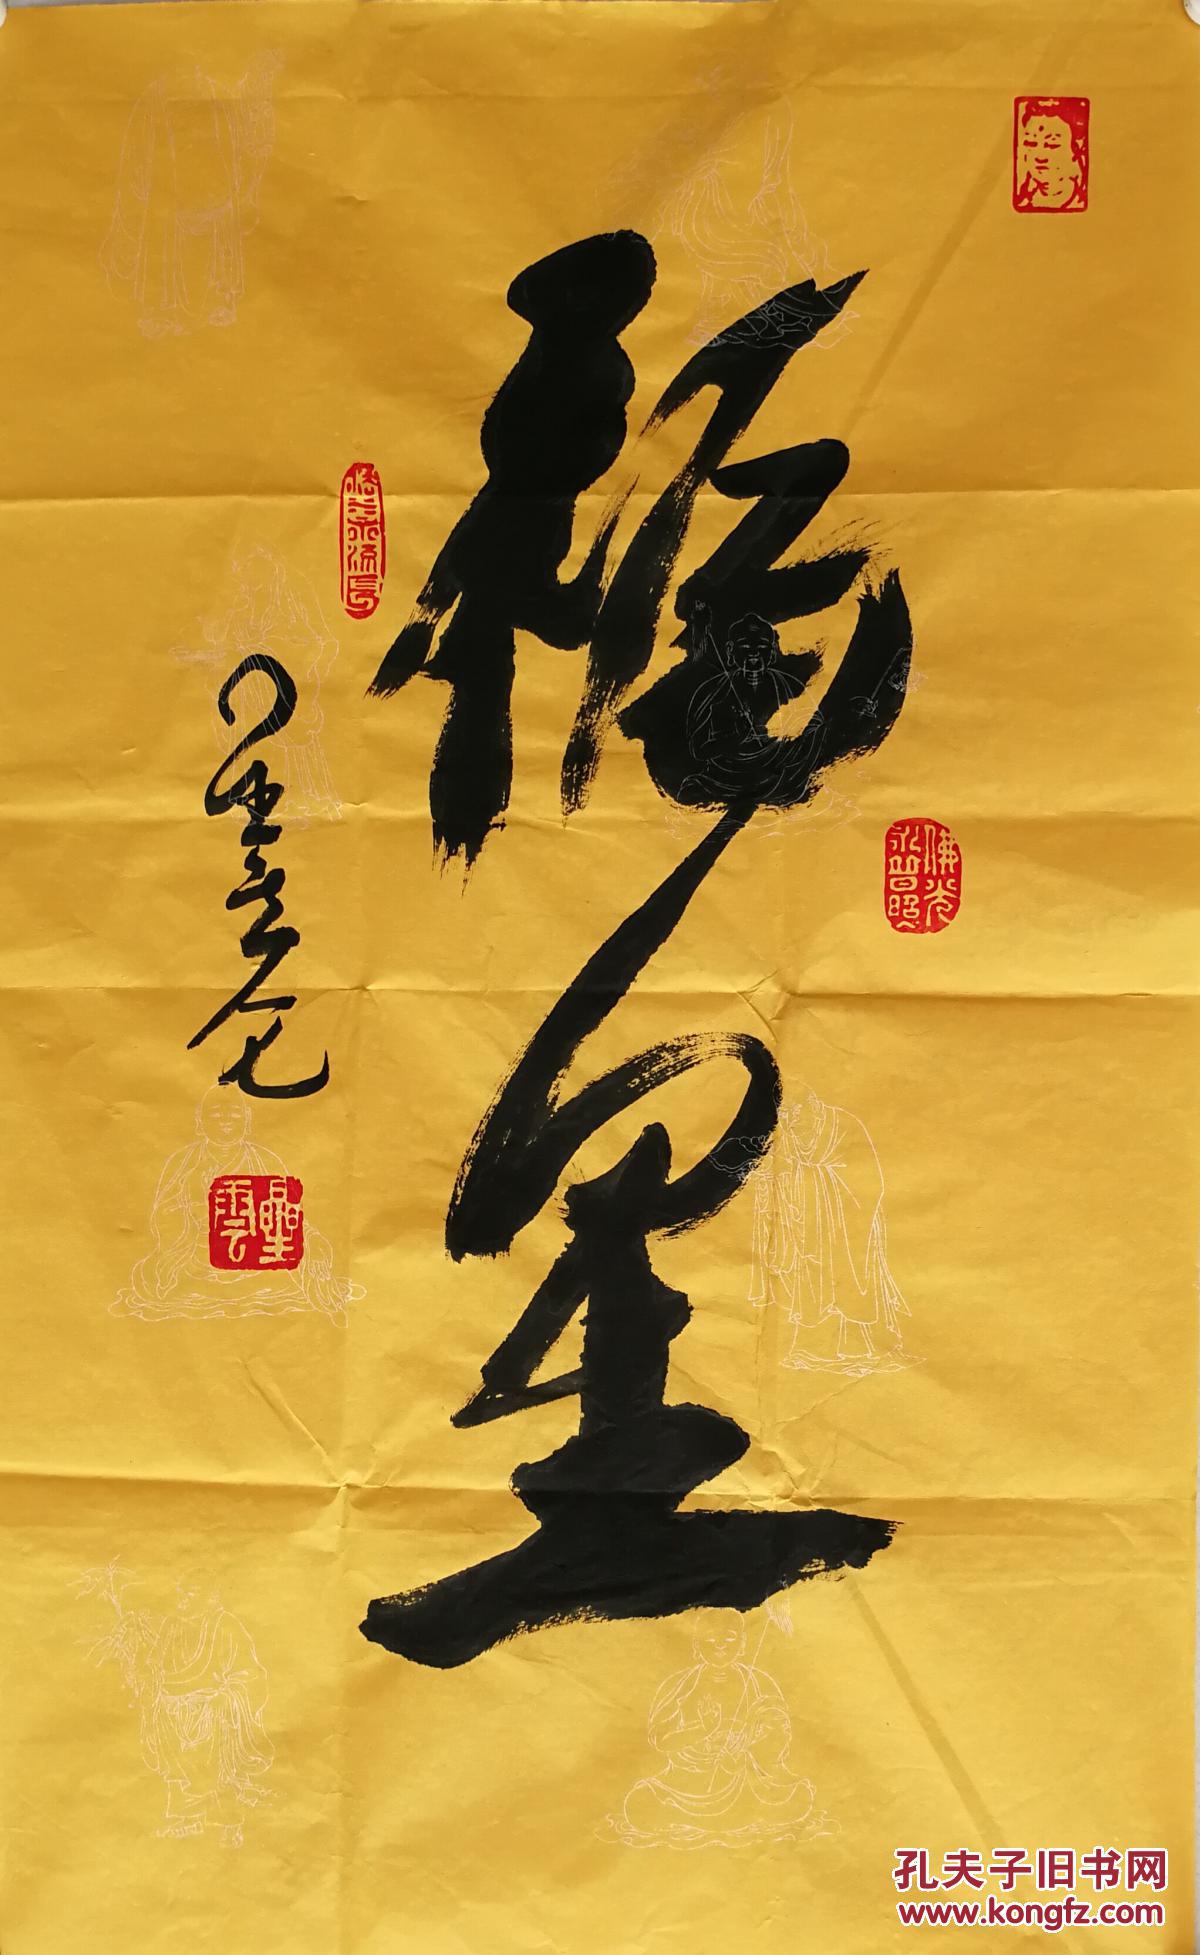 福星
佛光
永普照
星雲
孔夫子旧书网
www.kongfz.com